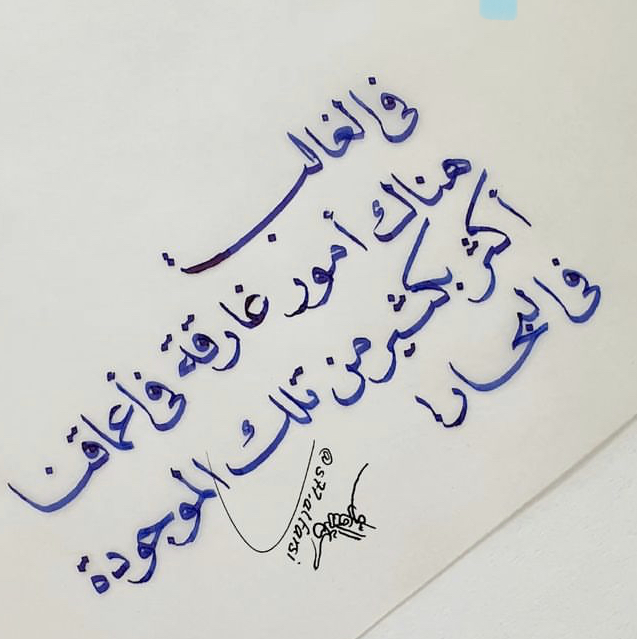 في الغالب
هناك أمور غارقة في أعماقنا
أكثر بكثير من تلك الموجودة
في البحار
@s77.alfarsi